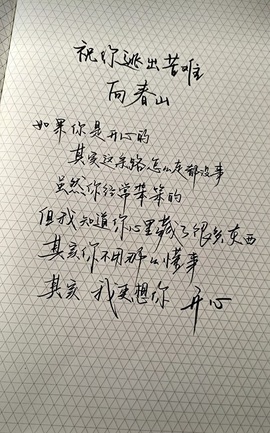 祝你逃出苦难
向春山
如果你是开心的
其实这条路怎么走都没事
虽然你经常笨笨的
但我知道你心里藏了很多东西
其实你不用那么懂事
其实 我更想你 开心